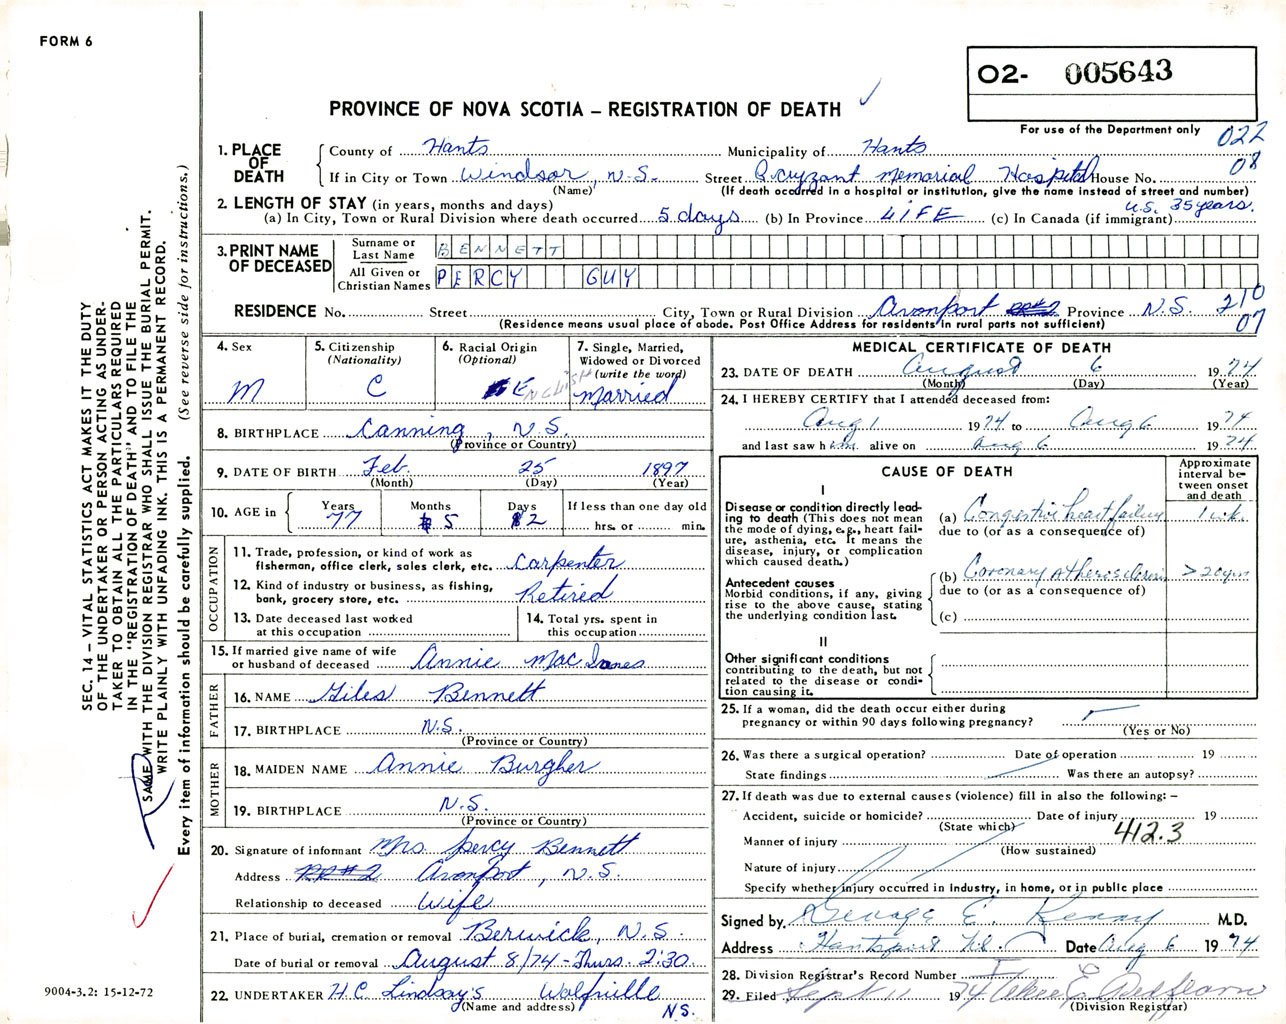 FORM 6
02- 005643
PROVINCE OF NOVA SCOTIA – REGISTRATION OF DEATH
For use of the Department only
022
08
1. PLACE OF DEATH
County of Hants Municipality of Hants
If in City or Town Windsor, N.S. Street Memorial Hospital House No.
(Name) (If death occurred in a hospital or institution, give the name instead of street and number)
2. LENGTH OF STAY (in years, months and days) U.S. 35 years.
(a) In City, Town or Rural Division where death occurred 5 days (b) In Province LIFE (c) In Canada (if immigrant)
3. PRINT NAME OF DECEASED
Surname or Last Name BENNETT
All Given or Christian Names PERCY GUY
RESIDENCE No. Street City, Town or Rural Division Avonport RR#2 Province N.S. 210
07
(Residence means usual place of abode. Post Office Address for residents in rural parts not sufficient)
4. Sex
M
5. Citizenship
(Nationality)
C
6. Racial Origin
(Optional)
ENGLISH
7. Single, Married,
Widowed or Divorced
(write the word)
Married
8. BIRTHPLACE Canning, N.S.
(Province or Country)
9. DATE OF BIRTH Feb. 25 1897
(Month) (Day) (Year)
10. AGE in
Years Months Days If less than one day old
77 5 12 hrs. or min.
OCCUPATION
11. Trade, profession, or kind of work as
fisherman, office clerk, sales clerk, etc. Carpenter
12. Kind of industry or business, as fishing,
bank, grocery store, etc. Retired
13. Date deceased last worked
at this occupation
14. Total yrs. spent in
this occupation
15. If married give name of wife
or husband of deceased Annie MacInnes
FATHER
16. NAME Giles Bennett
17. BIRTHPLACE N.S.
(Province or Country)
MOTHER
18. MAIDEN NAME Annie Burgher
19. BIRTHPLACE N.S.
(Province or Country)
20. Signature of informant Mrs Percy Bennett
Address RR#2 Avonport, N.S.
Relationship to deceased Wife
21. Place of burial, cremation or removal Berwick, N.S.
Date of burial or removal August 8/74 - Thurs. 2:30
22. UNDERTAKER H.C. Lindsay's Wolfville
(Name and address) N.S.
MEDICAL CERTIFICATE OF DEATH
23. DATE OF DEATH August 6 1974
(Month) (Day) (Year)
24. I HEREBY CERTIFY that I attended deceased from:
Aug 1 1974 to Aug 6 1974
and last saw him alive on Aug 6 1974
CAUSE OF DEATH
Approximate
interval be-
tween onset
and death
I
Disease or condition directly lead-
ing to death (This does not mean
the mode of dying, e.g., heart fail-
ure, asthenia, etc. It means the
disease, injury, or complication
which caused death.)
(a) Congestive heart failure 1 wk.
due to (or as a consequence of)
Antecedent causes
Morbid conditions, if any, giving
rise to the above cause, stating
the underlying condition last.
(b) Coronary Atherosclerosis > 20 yrs
due to (or as a consequence of)
(c)
II
Other significant conditions
contributing to the death, but not
related to the disease or condi-
tion causing it.
25. If a woman, did the death occur either during
pregnancy or within 90 days following pregnancy?
(Yes or No)
26. Was there a surgical operation? Date of operation 19
State findings Was there an autopsy?
27. If death was due to external causes (violence) fill in also the following: –
Accident, suicide or homicide? Date of injury 19
(State which) 412.3
Manner of injury
(How sustained)
Nature of injury
Specify whether injury occurred in industry, in home, or in public place
Signed by George E. Kenny M.D.
Address Hantsport N.S. Date Aug 6 1974
28. Division Registrar's Record Number
29. Filed Sept 11 1974
(Division Registrar)
SEC. 14 – VITAL STATISTICS ACT MAKES IT THE DUTY
OF THE UNDERTAKER OR PERSON ACTING AS UNDER-
TAKER TO OBTAIN ALL THE PARTICULARS REQUIRED
IN THE "REGISTRATION OF DEATH" AND TO FILE THE
SAME WITH THE DIVISION REGISTRAR WHO SHALL ISSUE THE BURIAL PERMIT.
WRITE PLAINLY WITH UNFADING INK. THIS IS A PERMANENT RECORD.
Every item of information should be carefully supplied. (See reverse side for instructions.)
9004-3.2: 15-12-72